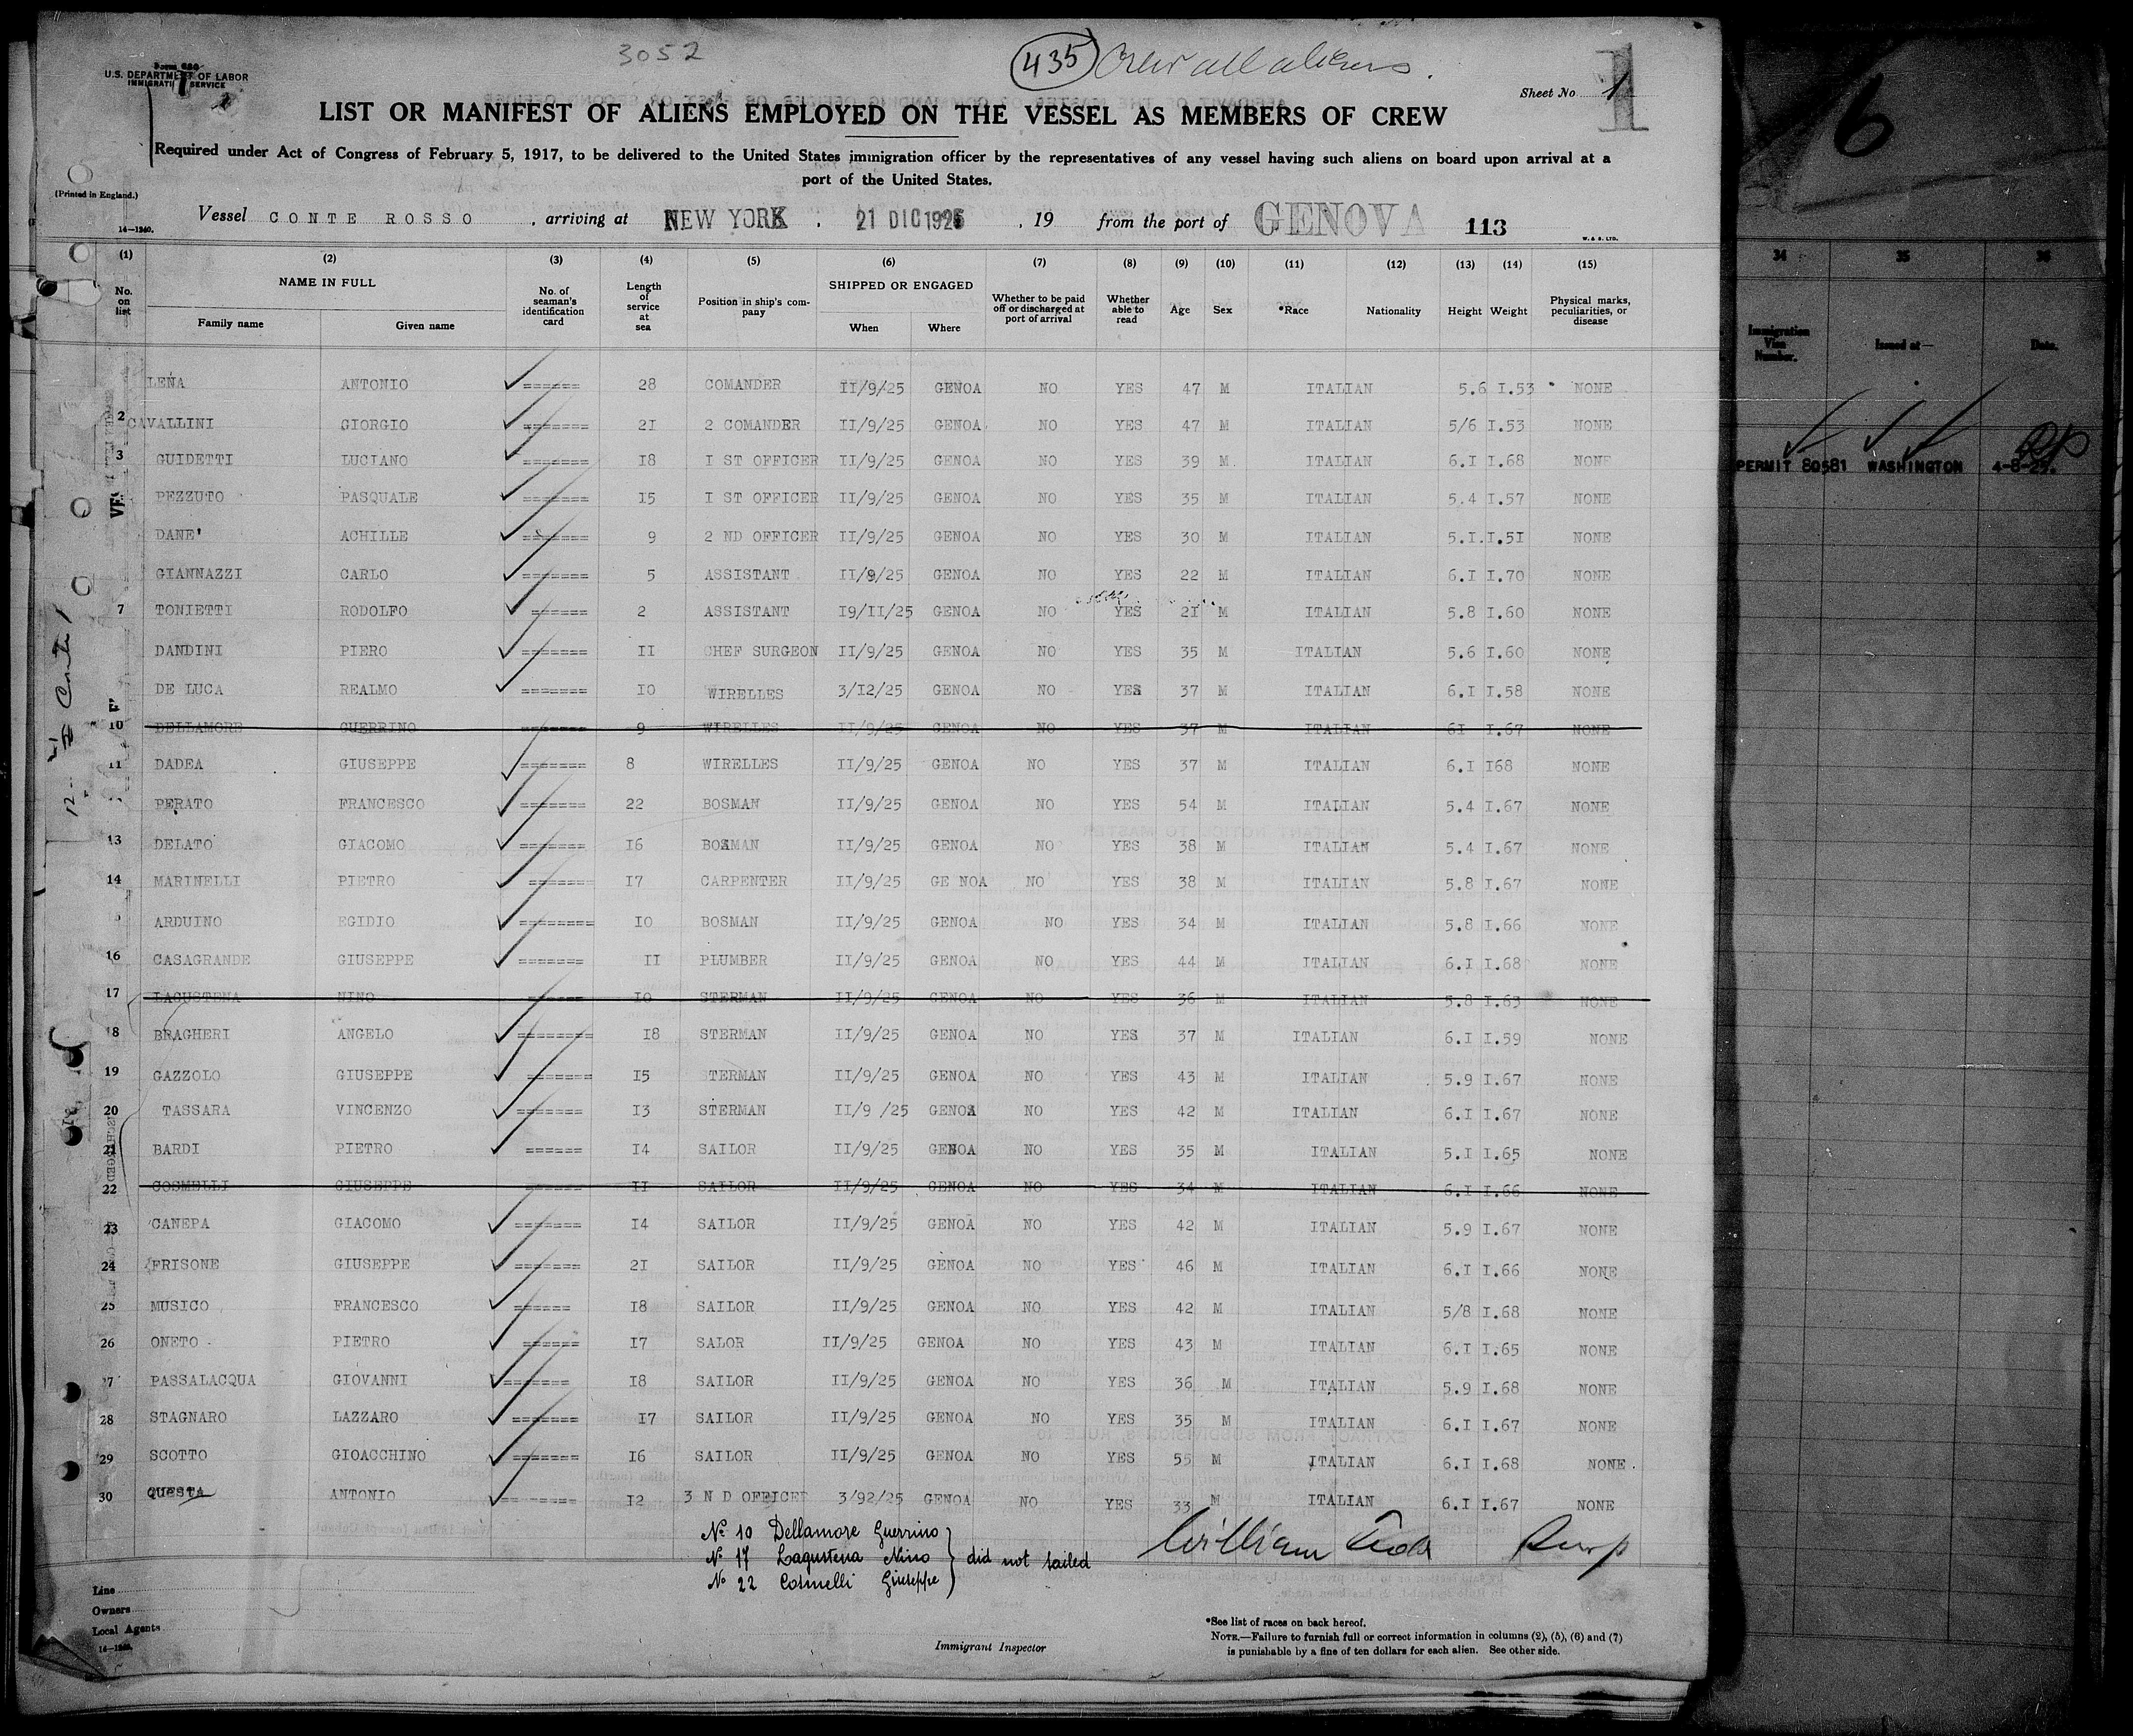 3052
435 Crew all aliens.
Form 680
U.S. DEPARTMENT OF LABOR
IMMIGRATION SERVICE
Sheet No 1
LIST OR MANIFEST OF ALIENS EMPLOYED ON THE VESSEL AS MEMBERS OF CREW
Required under Act of Congress of February 5, 1917, to be delivered to the United States immigration officer by the representatives of any vessel having such aliens on board upon arrival at a
port of the United States.
(Printed in England.)
14—1240.
Vessel CONTE ROSSO , arriving at NEW YORK , 21 DIC 1925 , 19 from the port of GENOVA 113
W. & S. LTD.
(1) (2) (3) (4) (5) (6) (7) (8) (9) (10) (11) (12) (13) (14) (15)
No. on list NAME IN FULL Family name Given name No. of seaman's identification card Length of service at sea Position in ship's company SHIPPED OR ENGAGED When Where Whether to be paid off or discharged at port of arrival Whether able to read Age Sex *Race Nationality Height Weight Physical marks, peculiarities, or disease
LENA ANTONIO ====== 28 COMANDER II/9/25 GENOA NO YES 47 M ITALIAN 5.6 I.53 NONE
2 CAVALLINI GIORGIO ======= 2I 2 COMANDER II/9/25 GENOA NO YES 47 M ITALIAN 5/6 I.53 NONE
3 GUIDETTI LUCIANO ======= I8 I ST OFFICER II/9/25 GENOA NO YES 39 M ITALIAN 6.I I.68 NONE
PEZZUTO PASQUALE ======= I5 I ST OFFICER II/9/25 GENOA NO YES 35 M ITALIAN 5.4 I.57 NONE
DANE' ACHILLE ======= 9 2 ND OFFICER II/9/25 GENOA NO YES 30 M ITALIAN 5.I. I.5I NONE
GIANNAZZI CARLO ======= 5 ASSISTANT II/9/25 GENOA NO YES 22 M ITALIAN 6.I I.70 NONE
7 TONIETTI RODOLFO ====== 2 ASSISTANT I9/II/25 GENOA NO YES 2I M ITALIAN 5.8 I.60 NONE
DANDINI PIERO ======= II CHEF SURGEON II/9/25 GENOA NO YES 35 M ITALIAN 5.6 I.60 NONE
DE LUCA REALMO ======= IO WIRELLES 3/I2/25 GENOA NO YES 37 M ITALIAN 6.I I.58 NONE
10 DELLAMORE GUERRINO ======= 9 WIRELLES II/9/25 GENOA NO YES 37 M ITALIAN 6I I.67 NONE
11 DADEA GIUSEPPE ======= 8 WIRELLES II/9/25 GENOA NO YES 37 M ITALIAN 6.I I68 NONE
PERATO FRANCESCO ======= 22 BOSMAN II/9/25 GENOA NO YES 54 M ITALIAN 5.4 I.67 NONE
13 DELATO GIACOMO ======= I6 BOSMAN II/9/25 GENOA NO YES 38 M ITALIAN 5.4 I.67 NONE
14 MARINELLI PIETRO ======= I7 CARPENTER II/9/25 GE NOA NO YES 38 M ITALIAN 5.8 I.67 NONE
ARDUINO EGIDIO ======== IO BOSMAN II/9/25 GENOA NO YES 34 M ITALIAN 5.8 I.66 NONE
16 CASAGRANDE GIUSEPPE ======= II PLUMBER II/9/25 GENOA NO YES 44 M ITALIAN 6.I I.68 NONE
17 LAGUSTENA NINO ====== IO STERMAN II/9/25 GENOA NO YES 36 M ITALIAN 5.8 I.63 NONE
18 BRAGHERI ANGELO ======== I8 STERMAN II/9/25 GENOA NO YES 37 M ITALIAN 6.I I.59 NONE
19 GAZZOLO GIUSEPPE ======= I5 STERMAN II/9/25 GENOA NO YES 43 M ITALIAN 5.9 I.67 NONE
20 TASSARA VINCENZO ======= I3 STERMAN II/9 /25 GENOA NO YES 42 M ITALIAN 6.I I.67 NONE
21 BARDI PIETRO ====== I4 SAILOR II/9/25 GENOA NO YES 35 M ITALIAN 5.I I.65 NONE
22 COSMELLI GIUSEPPE ====== II SAILOR II/9/25 GENOA NO YES 34 M ITALIAN 6.I I.66 NONE
23 CANEPA GIACOMO ======= I4 SAILOR II/9/25 GENOA NO YES 42 M ITALIAN 5.9 I.67 NONE
24 FRISONE GIUSEPPE ======= 2I SAILOR II/9/25 GENOA NO YES 46 M ITALIAN 6.I I.66 NONE
25 MUSICO FRANCESCO ====== I8 SAILOR II/9/25 GENOA NO YES 42 M ITALIAN 5/8 I.68 NONE
26 ONETO PIETRO ====== I7 SALOR II/9/25 GENOA NO YES 43 M ITALIAN 6.I I.65 NONE
27 PASSALACQUA GIOVANNI ======= I8 SAILOR II/9/25 GENOA NO YES 36 M ITALIAN 5.9 I.68 NONE
28 STAGNARO LAZZARO ======= I7 SAILOR II/9/25 GENOA NO YES 35 M ITALIAN 6.I I.67 NONE
29 SCOTTO GIOACCHINO ======= I6 SAILOR II/9/25 GENOA NO YES 55 M ITALIAN 6.I I.68 NONE.
30 QUESTA ANTONIO ======== I2 3 N D OFFICER 3/92/25 GENOA NO YES 33 M ITALIAN 6.I I.67 NONE
No 10 Dellamore Guerrino
No 17 Lagustena Nino did not sailed
No 22 Cosmelli Giuseppe
William
Line
Owners
Local Agents
14—1240.
Immigrant Inspector
*See list of races on back hereof.
NOTE.—Failure to furnish full or correct information in columns (2), (5), (6) and (7)
is punishable by a fine of ten dollars for each alien. See other side.
6
34 35 36
Immigration Visa Number. Issued at— Date.
PERMIT 80581 WASHINGTON 4-8-25.